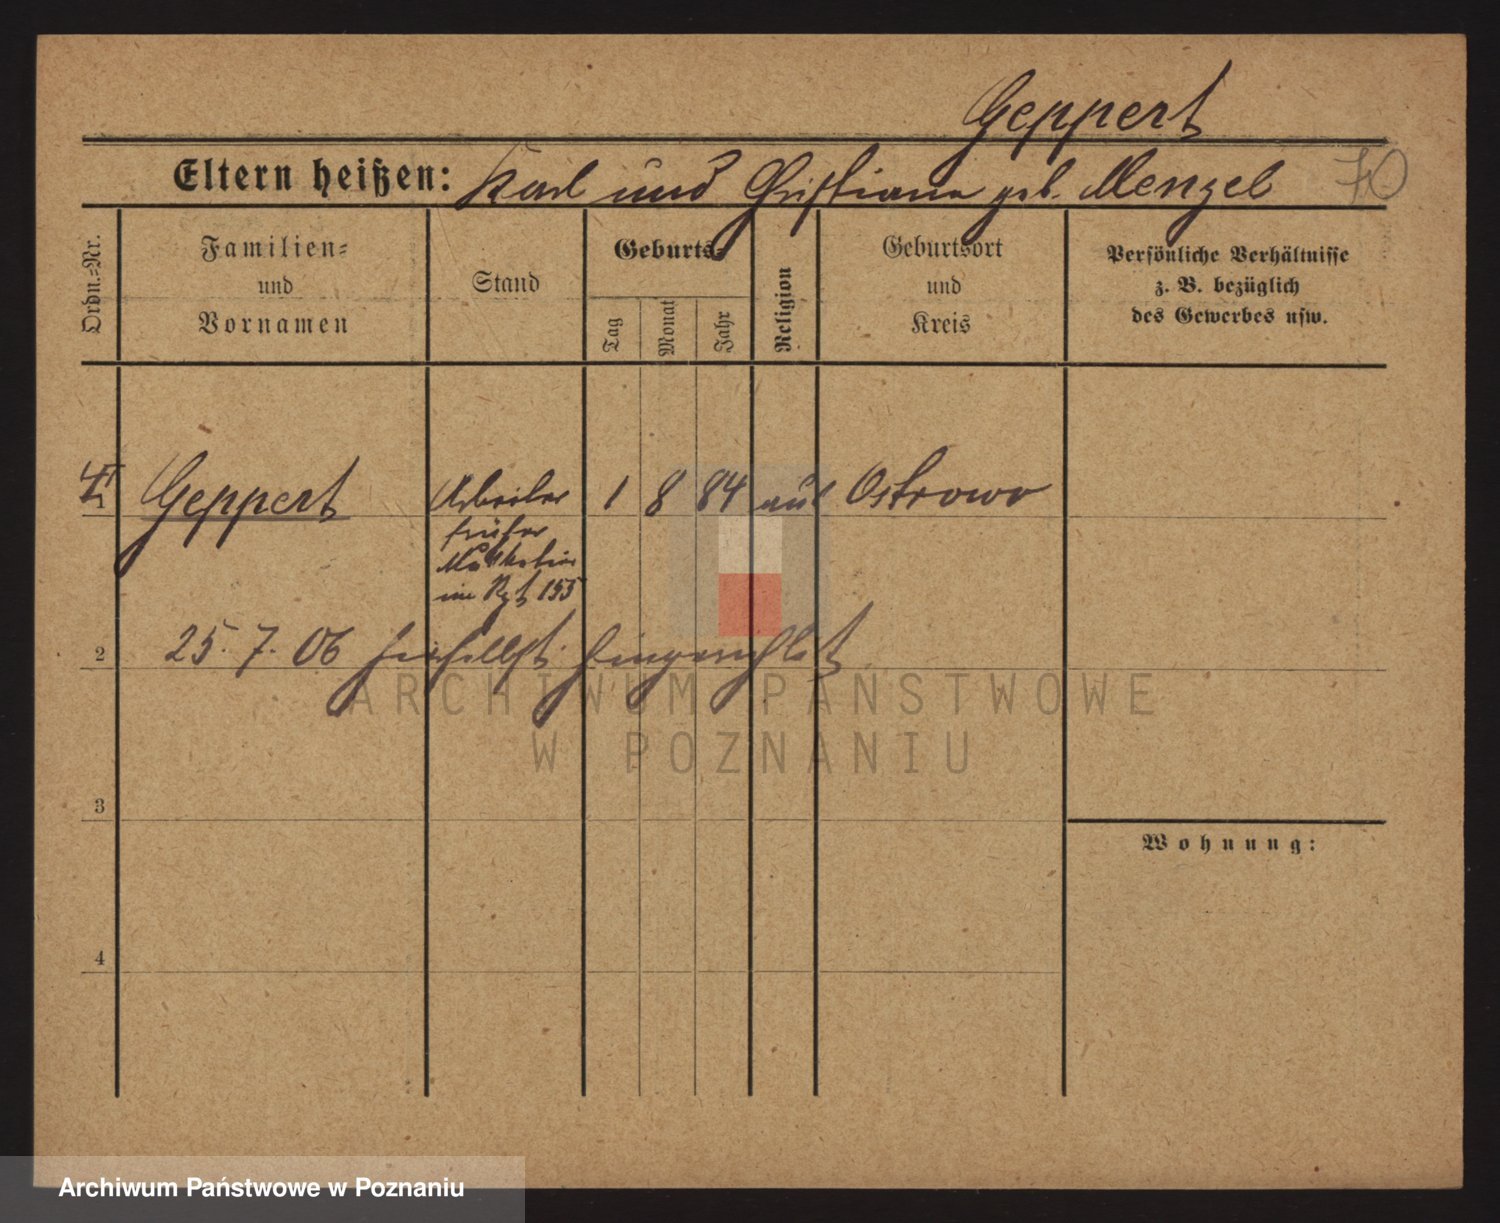 Geppert
Eltern heißen: Karl und Christiane geb. Menzel 70
Ordn.=Nr.
Familien=
und
Vornamen
Stand
Geburts=
Tag
Monat
Jahr
Religion
Geburtsort
und
Kreis
Persönliche Verhältnisse
z. B. bezüglich
des Gewerbes usw.
1 Geppert Arbeiter 1 8 84 aus Ostrowo
früher
Musketier
im Rgt 155
2 25. 7. 06 hierselbst hingerichtet
3
Wohnung:
4
ARCHIWUM PAŃSTWOWE
W POZNANIU
Archiwum Państwowe w Poznaniu